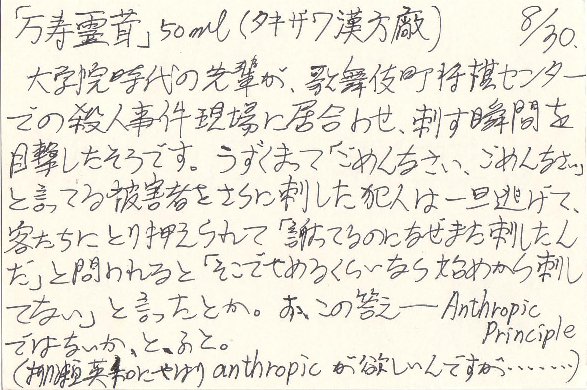 「万寿霊茸」50ml(タキザワ漢方廠) 8/30.
大学院時代の先輩が、歌舞伎町将棋センター
での殺人事件現場に居合わせ、刺す瞬間を
目撃したそうです。うずくまって「ごめんなさい、ごめんなさい」
と言ってる被害者をさらに刺した犯人は一旦逃げて、
客たちにとり押えられて「謝ってるのになぜまた刺したん
だ」と問われると「そこでやめるくらいなら始めから刺し
てない」と言ったとか。お、この答え―Anthropic
Principle
ではないか、と、ふと。
(
英和にやはりanthropicが欲しいんですが………)